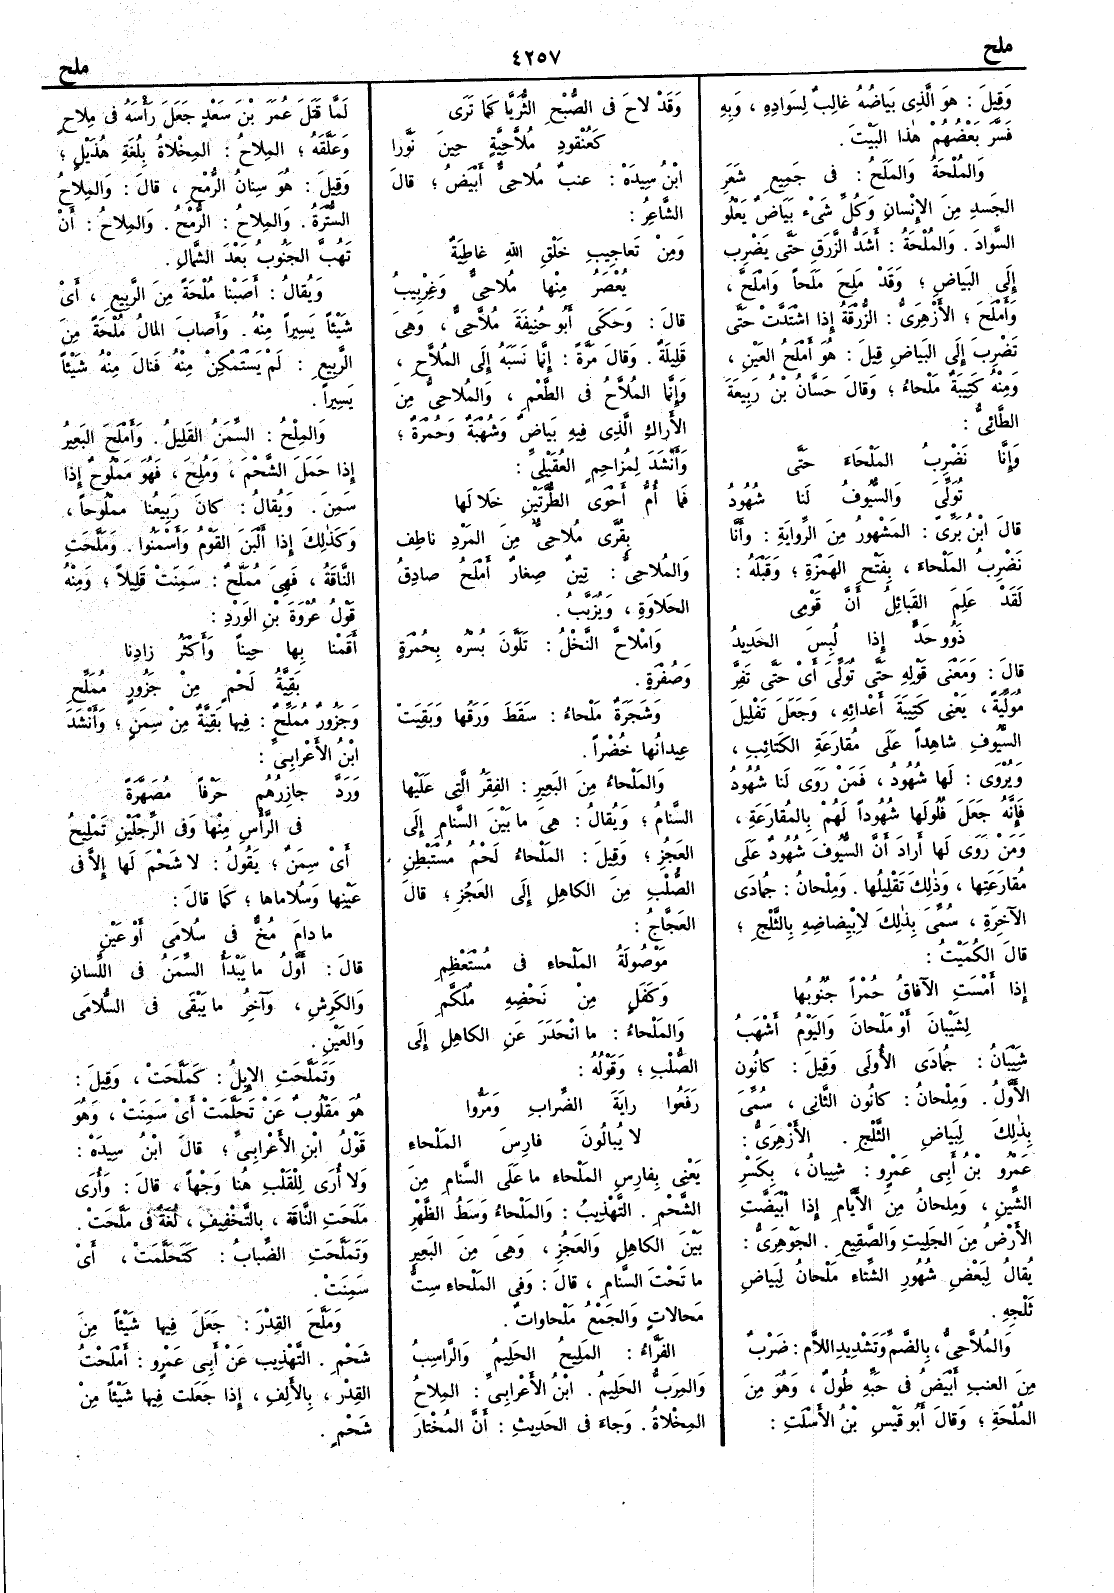 ملح
٤٢٥٧
ملح
وَقِيلَ : هُوَ الَّذِى بَيَاضُهُ غالِبٌ لِسَوادِهِ ، وَبِهِ
فَسَّرَ بَعْضُهُمْ هٰذا البَيْتَ .
وَالمُلْحَةُ وَالمَلَحُ : فى جَمِيعِ شَعَرِ
الجَسَدِ مِنَ الإِنْسانِ وَكُلِّ شَىْءٍ بَيَاضٌ يَعْلُو
السَّوادَ . وَالمُلْحَةُ : أَشَدُّ الزَّرَقِ حَتَّى يَضْرِب
إِلَى البَياضِ ؛ وَقَدْ مَلِحَ مَلَحاً وَامْلَحَّ ،
وَأَمْلَحَ ؛ الأَزْهَرِىُّ : الزُّرْقَةُ إِذا اشْتَدَّتْ حَتَّى
تَضْرِبَ إِلَى البَياضِ قِيلَ : هُوَ أَمْلَحُ العَيْنِ ،
وَمِنْهُ كَتِيبَةٌ مَلْحاءُ ؛ وَقالَ حَسَّانُ بْنُ رَبِيعَةَ
الطَّائِىُّ :
وَإِنَّا نَضْرِبُ المَلْحَاءَ حَتَّى
تُوَلِّىَ وَالسُّيُوفُ لَنا شُهُودُ
قالَ ابْنُ بَرِّىّ : المَشْهُورُ مِنَ الرِّوايَةِ : وَأَنَّا
نَضْرِبُ المَلْحاءَ ، بِفَتْحِ الهَمْزَةِ ؛ وَقَبْلَهُ :
لَقَدْ عَلِمَ القَبائِلُ أَنَّ قَوْمِى
ذَوُو حَدٍّ إِذا لُبِسَ الحَدِيدُ
قالَ : وَمَعْنَى قَوْلِهِ حَتَّى تُوَلِّىَ أَىْ حَتَّى تَفِرَّ
مُوَلِّيَةً ، يَعْنِى كَتِيبَةَ أَعْدائِهِ ، وَجَعَلَ تَفْلِيلَ
السُّيُوفِ شاهِداً عَلَى مُقارَعَةِ الكَتائِبِ ،
وَيُرْوَى : لَها شُهُودُ ، فَمَنْ رَوَى لَنا شُهُودُ
فَإِنَّهُ جَعَلَ فُلُولَها شُهُوداً لَهُمْ بِالمُقارَعَةِ ،
وَمَنْ رَوَى لَها أَرادَ أَنَّ السُّيُوفَ شُهُودٌ عَلَى
مُقارَعَتِها ، وَذٰلِكَ تَقْلِيلُها . وَمِلْحانُ : جُمادَى
الآخِرَةِ ، سُمِّىَ بِذٰلِكَ لاِبْيِضاضِهِ بِالثَّلْجِ ؛
قالَ الكُمَيْتُ :
إِذا أَمْسَتِ الآفاقُ حُمْراً جُنُوبُها
لِشَيْبانَ أَوْ مَلْحانَ وَاليَوْمُ أَشْهَبُ
شَيْبانُ : جُمادَى الأُولَى وَقِيلَ : كانُون
الأَوَّلُ . وَمِلْحانُ : كانُون الثَّانِى ، سُمِّىَ
بِذٰلِكَ لِبَياضِ الثَّلْجِ . الأَزْهَرِىُّ :
عَمْرُو بْنُ أَبِى عَمْرٍو : شِيبانُ ، بِكَسْرِ
الشِّينِ ، وَمِلحانُ مِنَ الأَيَّامِ إِذا ابْيَضَّتِ
الأَرْضُ مِنَ الجَلِيتِ وَالصَّقِيعِ . الجَوْهَرِىُّ :
يُقالُ لِبَعْضِ شُهُورِ الشِّتاءِ مَلْحانُ لِبَياضِ
ثَلْجِهِ .
وَالمُلاَّحِىُّ ، بِالضَّمِّ وَتَشْدِيدِ اللاَّمِ : ضَرْبٌ
مِنَ العِنَبِ أَبْيَضُ فى حَبِّهِ طُولٌ ، وَهُوَ مِنَ
المُلْحَةِ ؛ وَقالَ أَبُو قَيْسِ بْنُ الأَسْلَتِ :
وَقَدْ لاحَ فى الصُّبْحِ الثُّرَيَّا كَمَا تَرَى
كَعُنْقودِ مُلاَّحِيَّةٍ حِينَ نَوَّرا
ابْنُ سِيدَهْ : عنبٌ مُلاحِىٌّ أَبْيَضُ ؛ قالَ
الشَّاعِرُ :
وَمِنْ تَعاجِيبِ خَلْقِ اللهِ غاطِيَةٌ
يُعْصَرُ مِنْها مُلاحِىٌّ وَغِرْبِيبُ
قالَ : وَحَكَى أَبُو حَنِيفَةَ مُلاَّحِىٌّ ، وَهِىَ
قَلِيلَةٌ . وَقالَ مَرَّةً : إِنَّما نَسَبَهُ إِلَى المُلاَّحِ ،
وَإِنَّما المُلاَّحُ فى الطَّعْمِ ، وَالمُلاحِىُّ مِنَ
الأَراكِ الَّذِى فِيهِ بَياضٌ وَشُهْبَةٌ وَحُمْرَةٌ ؛
وَأَنْشَدَ لِمُزاحِمٍ العُقَيْلِىِّ :
فَما أُمُّ أَحْوَى الطُّرَّتَيْنِ خَلا لَها
بِقُرَّى مُلاحِىٌّ مِنَ المَرْدِ ناطِف
وَالمُلاحِىُّ : تِينٌ صِغارٌ أَمْلَحُ صادِقُ
الحَلاوَةِ ، وَيُزَبَّبُ .
وَامْلاحَّ النَّخْلُ : تَلَوَّنَ بُسْرُه بِحُمْرَةٍ
وَصُفْرَةٍ .
وَشَجَرَةٌ مَلْحاءُ : سَقَطَ وَرَقُها وَبَقِيَتْ
عِيدانُها خُضْراً .
وَالمَلْحاءُ مِنَ البَعِيرِ : الفِقَرُ الَّتِى عَلَيْها
السَّنامُ ؛ وَيُقالُ : هِىَ ما بَيْنَ السَّنامِ إِلَى
العَجُزِ ؛ وَقِيلَ : المَلْحاءُ لَحْمٌ مُسْتَبْطِنِ
الصُّلْبِ مِنَ الكاهِلِ إِلَى العَجُزِ ؛ قالَ
العَجَّاجُ :
مَوْصُولَةُ المَلْحاءِ فى مُسْتَعْظِمِ
وَكَفَلٍ مِنْ نَحْضِهِ مُلَكَّمِ
وَالمَلْحاءُ : ما انْحَدَرَ عَنِ الكاهِلِ إِلَى
الصُّلْبِ ؛ وَقَوْلُهُ :
رَفَعُوا رايَةَ الضِّرابِ وَمَرُّوا
لا يُبالُونَ فارِسَ المَلْحاء
يَعْنِى بِفارِسِ المَلْحاءِ ما عَلَى السَّنامِ مِنَ
الشَّحْمِ . التَّهْذِيبُ : وَالمَلْحاءُ وَسَطُ الظَّهْرِ
بَيْنَ الكاهِلِ وَالعَجُزِ ، وَهِىَ مِنَ البَعِيرِ
ما تَحْتَ السَّنامِ ، قالَ : وَفِى المَلْحاءِ سِتُّ
مَحالاتٍ وَالجَمْعُ مَلْحاوات .
الفَرَّاءُ : المَلِيحُ الحَلِيمُ وَالرَّاسِبُ
وَالمِرَبُّ الحَلِيمُ . ابْنُ الأَعْرابِىِّ : المِلاحُ
المِخْلاةُ . وَجاءَ فى الحَدِيثِ : أَنَّ المُخْتارَ
لَمَّا قَتَلَ عُمَرَ بْنَ سَعْدٍ جَعَلَ رَأْسَهُ فى مِلاحٍ
وَعَلَّقَهُ ؛ المِلاحُ : المِخْلاةُ بِلُغَةِ هُذَيْلٍ ؛
وَقِيلَ : هُوَ سِنانُ الرُّمْحِ ، قالَ : وَالمِلاحُ
السُّتْرَةُ . وَالمِلاحُ : الرُّمْحُ . وَالمِلاحُ : أَنْ
تَهُبَّ الجَنُوبُ بَعْدَ الشَّمالِ .
وَيُقالُ : أَصَبْنا مُلْحَةً مِنَ الرَّبِيعِ ، أَىْ
شَيْئاً يَسِيراً مِنْهُ . وَأَصابَ المالُ مُلْحَةً مِنَ
الرَّبِيعِ : لَمْ يَسْتَمْكِنْ مِنْهُ فَنالَ مِنْهُ شَيْئاً
يَسِيراً .
وَالمِلْحُ : السِّمَنُ القَلِيلُ . وَأَمْلَحَ البَعِيرُ
إِذا حَمَلَ الشَّحْمَ ، وَمُلِحَ ، فَهُوَ مَمْلُوحٌ إِذا
سَمِنَ . وَيُقالُ : كانَ رَبِيعُنا مملُوحاً ،
وَكَذٰلِكَ إِذا أَلْبَنَ القَوْمُ وَأَسْمَنُوا . وَمَلَّحَتِ
النَّاقَةُ ، فَهِىَ مُمَلِّحٌ : سَمِنَتْ قَلِيلاً ؛ وَمِنْهُ
قَوْلُ عُرْوَةَ بْنِ الوَرْدِ :
أَقَمْنا بِها حِيناً وَأَكْثَرُ زادِنا
بَقِيَّةُ لَحْمٍ مِنْ جَزُورٍ مُمَلِّحِ
وَجَزُورٌ مُمَلِّحٌ : فِيها بَقِيَّةٌ مِنْ سِمَنٍ ؛ وَأَنْشَدَ
ابْنُ الأَعْرابِىِّ :
وَرَدَّ جازِرُهُم حَرْفاً مُصَهَّرَةً
فى الرَّأْسِ مِنْها وَفى الرِّجْلَيْنِ تَمْلِيحُ
أَىْ سِمَنٌ ؛ يَقُولُ : لا شَحْمَ لَها إِلاَّ فى
عَيْنِها وَسُلاماها ؛ كما قالَ :
ما دامَ مُخٌّ فى سُلامَى أَوْ عَيْنِ
قالَ : أَوَّلُ ما يَبْدَأُ السِّمَنُ فى اللِّسانِ
وَالكَرِشِ ، وَآخِرُ ما يَبْقَى فى السُّلامَى
وَالعَيْنِ .
وَتَمَلَّحَتِ الإِبِلُ : كَمَلَّحَتْ ، وَقِيلَ :
هُوَ مَقْلُوبٌ عَنْ تَحَلَّمَتْ أَىْ سَمِنَتْ ، وَهُوَ
قَوْلُ ابْنِ الأَعْرابِىِّ ؛ قالَ ابْنُ سِيدَهْ :
وَلا أُرَى لِلْقَلْبِ هُنا وَجْهاً ، قالَ : وَأُرَى
مَلَحَتِ النَّاقَة ، بِالتَّخْفِيفِ ، لُغَةً فى مَلَّحَتْ .
وَتَمَلَّحَتِ الضِّبابُ : كَتَحَلَّمَتْ ، أَىْ
سَمِنَتْ .
وَمَلَّحَ القِدْرَ : جَعَلَ فِيها شَيْئاً مِنَ
شَحْمٍ . التَّهْذِيب عَنْ أَبِى عَمْرٍو : أَمْلَحْتُ
القِدْرَ ، بِالأَلِفِ ، إِذا جَعَلت فِيها شَيْئاً مِنْ
شَحْمٍ .